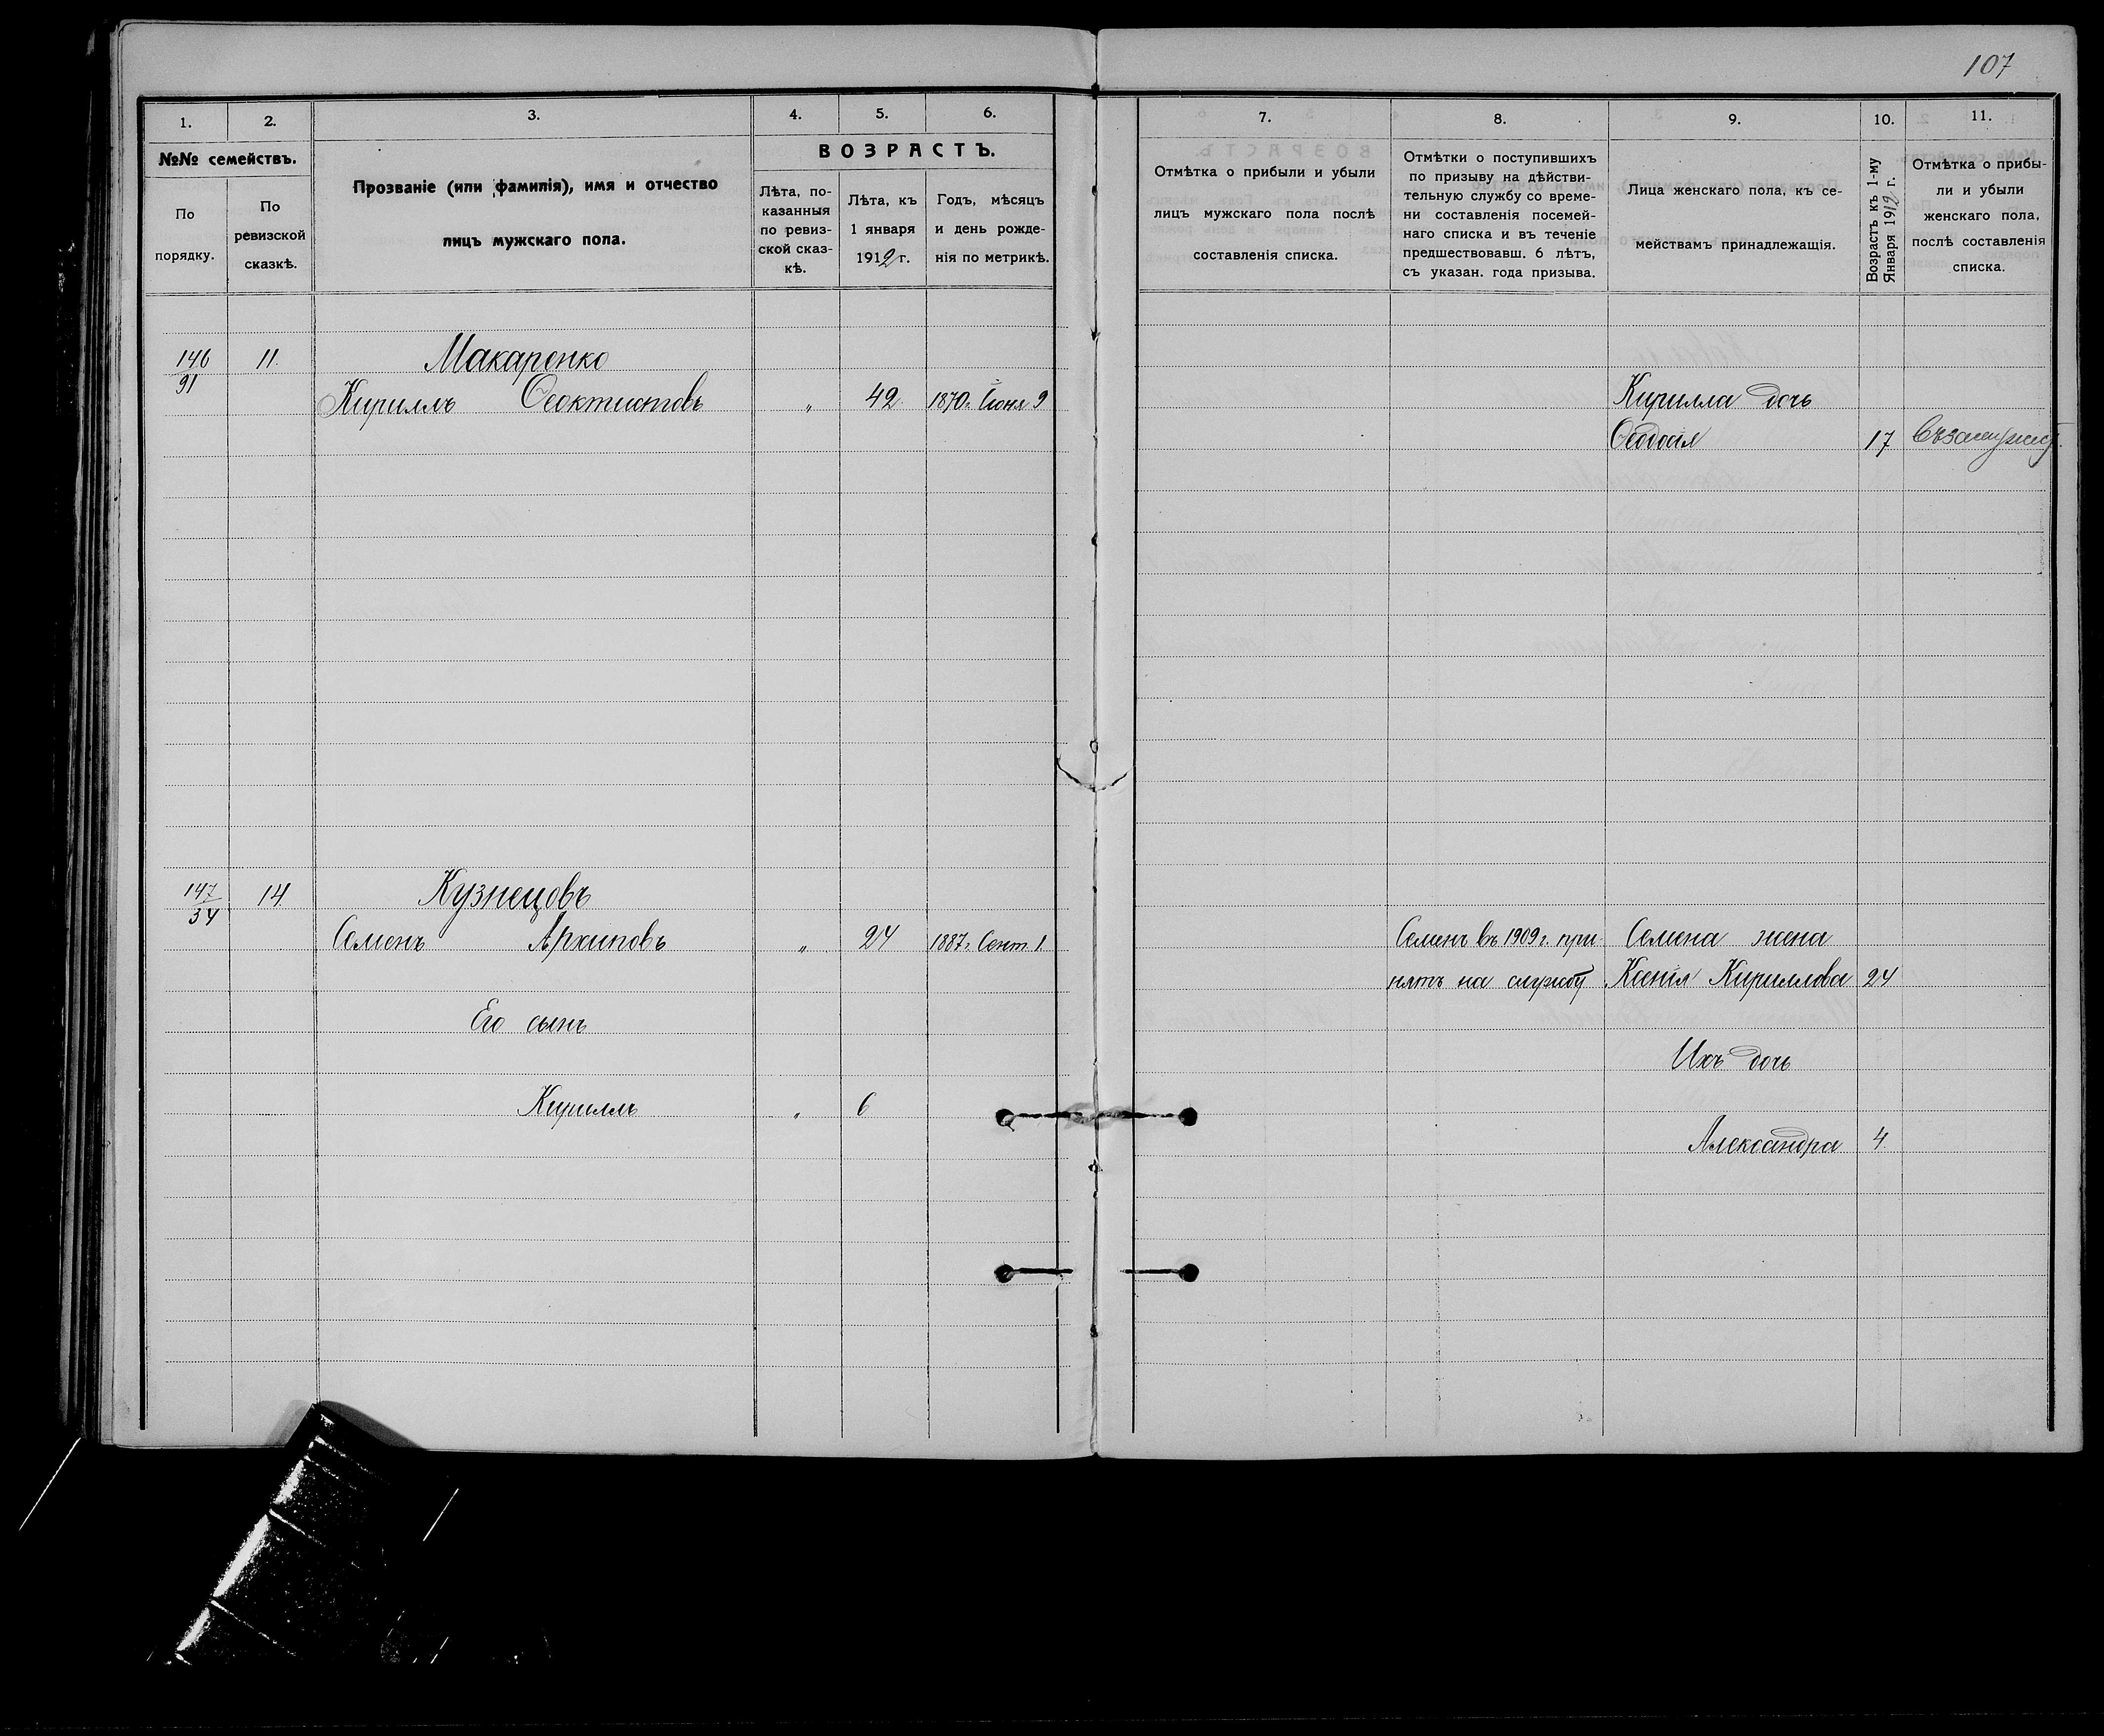 107
1. 2. 3. 4. 5. 6. 7. 8. 9. 10. 11.
№№ семействъ.
По порядку.
По ревизской сказкѣ.
Прозваніе (или фамилія), имя и отчество
лицъ мужскаго пола.
ВОЗРАСТЪ.
Лѣта, по-
казанныя
по ревиз-
ской сказ-
кѣ.
Лѣта, къ
1 января
1912 г.
Годъ, мѣсяцъ
и день рожде-
нія по метрикѣ.
Отмѣтка о прибыли и убыли
лицъ мужскаго пола послѣ
составленія списка.
Отмѣтки о поступившихъ
по призыву на дѣйстви-
тельную службу со време-
ни составленія посемей-
наго списка и въ теченіе
предшествовавш. 6 лѣтъ,
съ указан. года призыва.
Лица женскаго пола, къ се-
мействамъ принадлежащія.
Возрастъ къ 1-му
Января 1912 г.
Отмѣтка о прибы-
ли и убыли
женскаго пола,
послѣ составленія
списка.
146 11. Макаренко
91 Кириллъ Ѳеоктистовъ „ 42. 1870г. Іюня 9 Кирилла дочь
17
147 14 Кузнецовъ
34 Семенъ Архиповъ „ 24 1887г. Сент. 1 Семенъ въ 1909г. при- Семена жена
нятъ на службу Ксенія Кириллова 24
Его сынъ
Ихъ дочь
Кириллъ „ 6
Александра 4